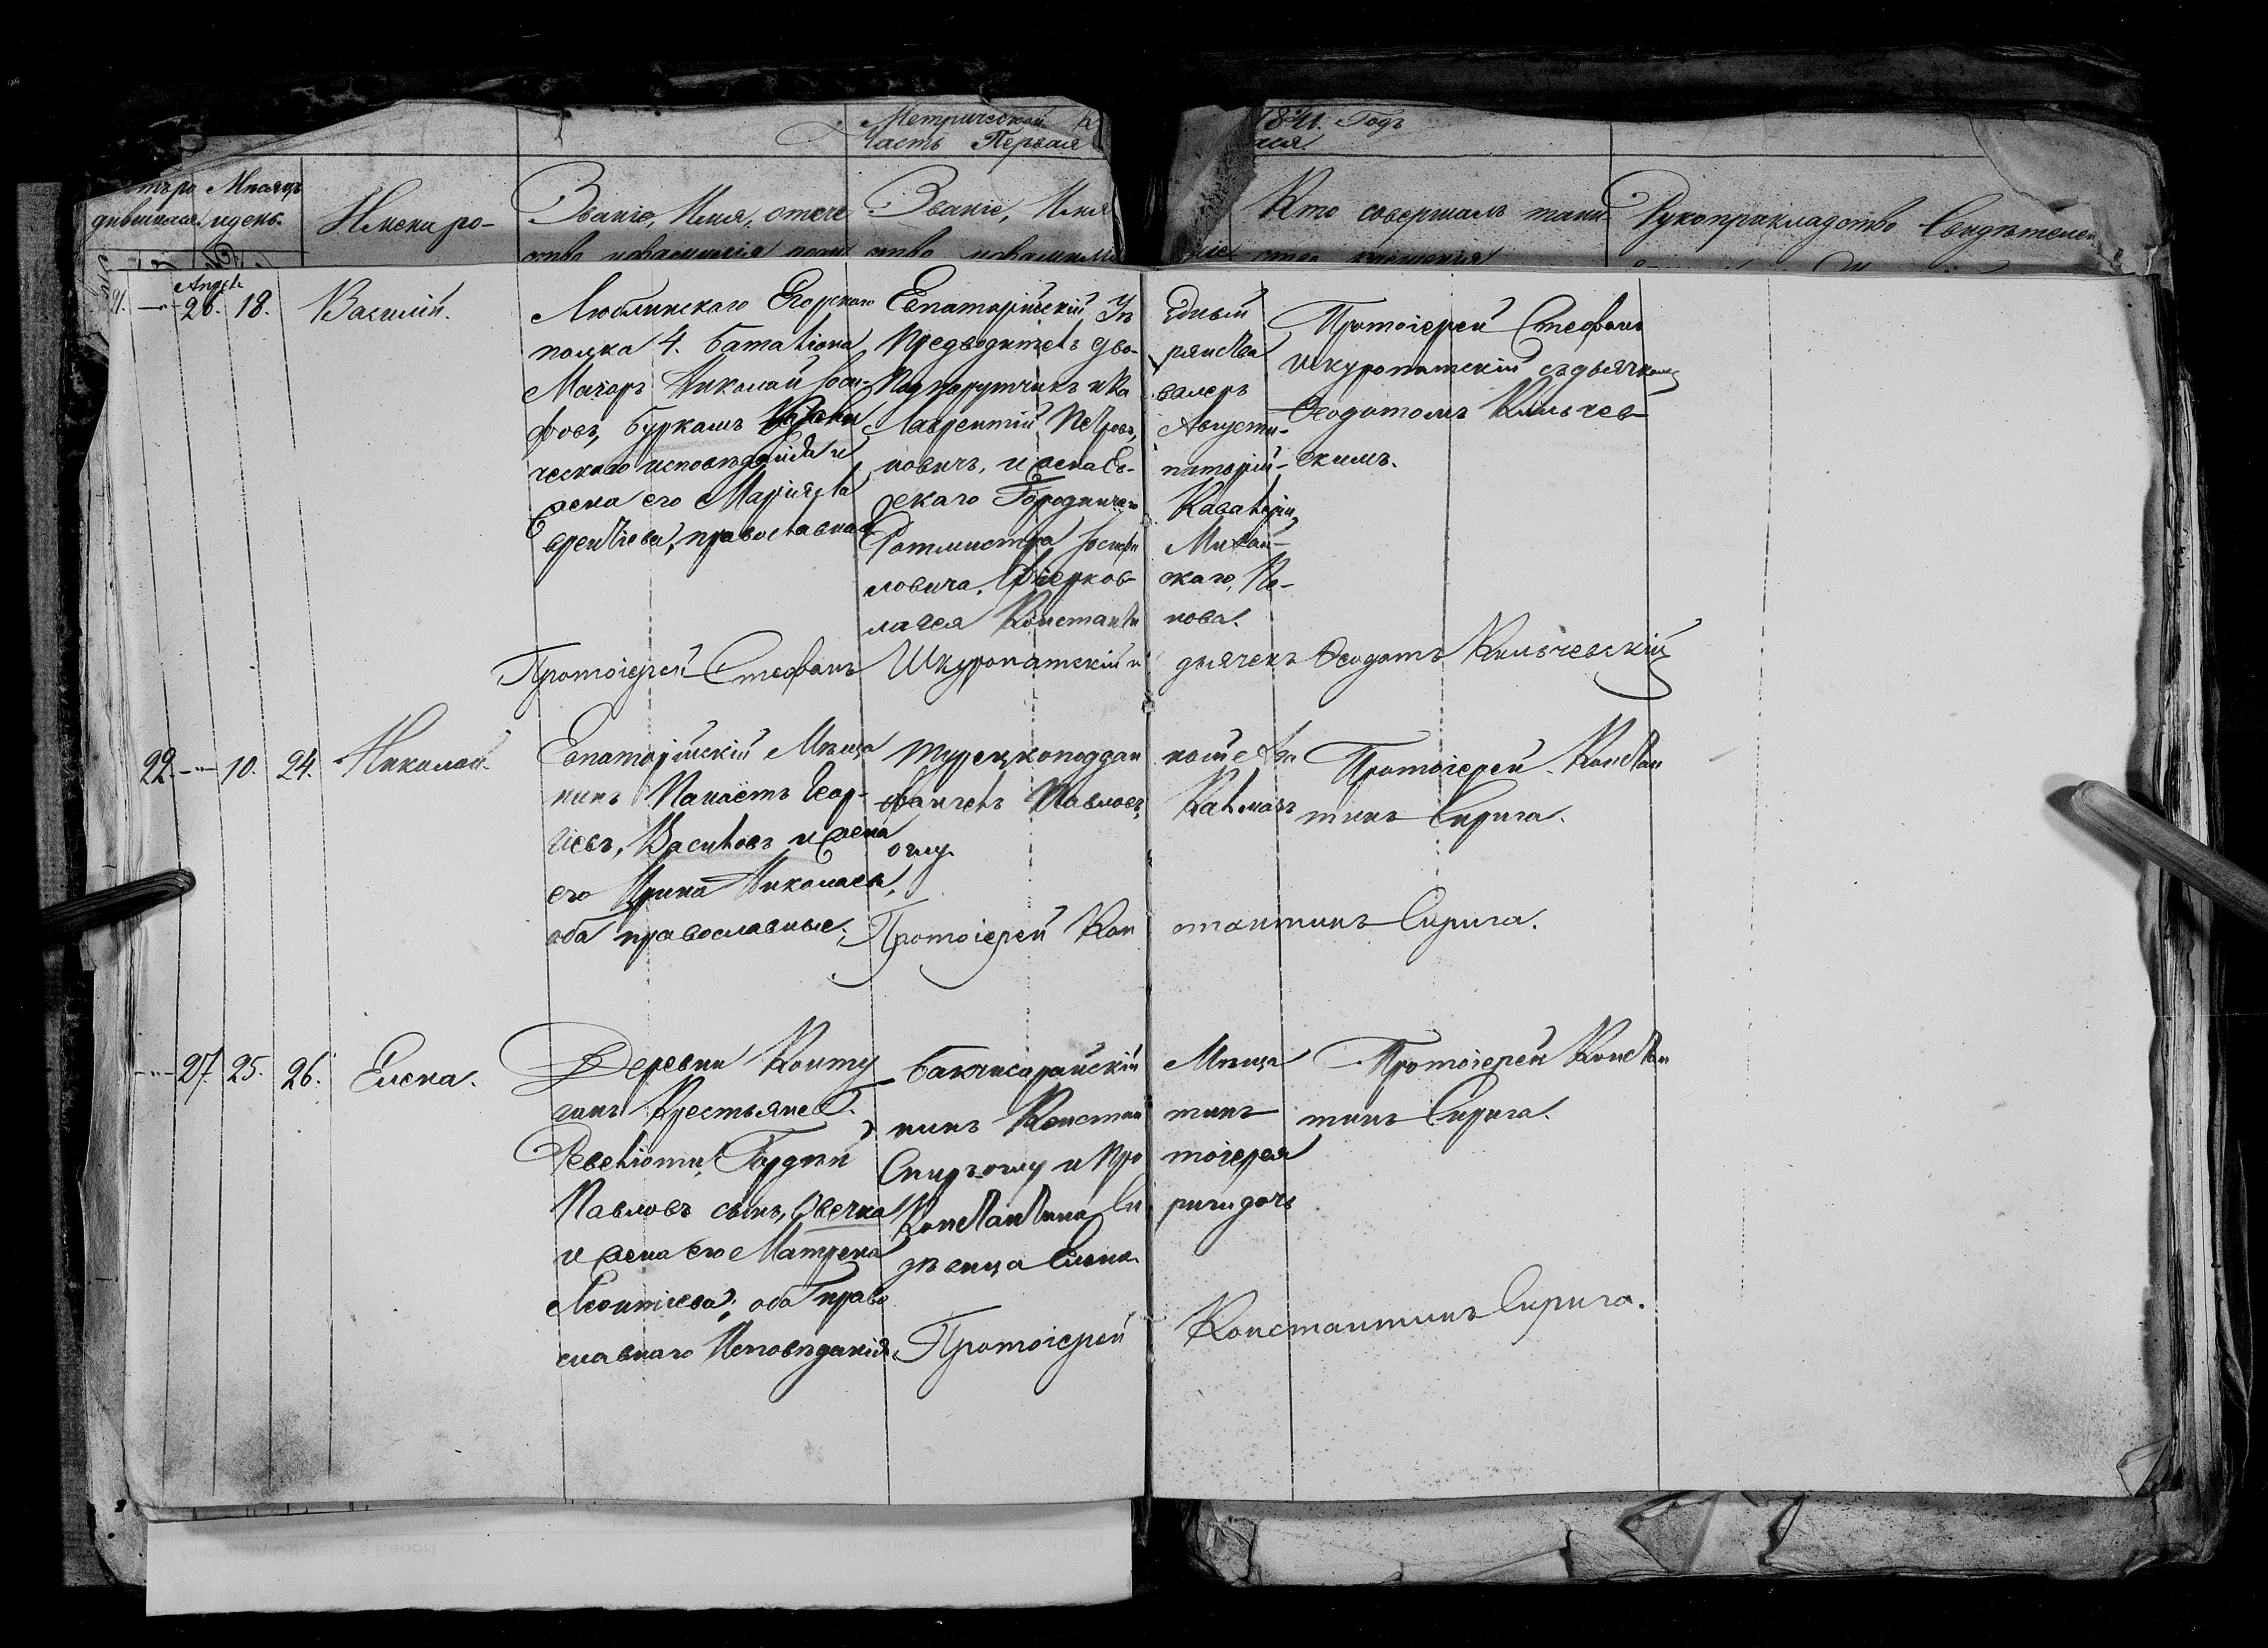 Метрической
Часть Первая
1841. Годъ
Мѣсяцъ
и день.
Имена ро-
Званіе, Имя, отече
Званіе, Имя
Кто совершалъ таин
Рукоприкладство Свидѣтелей
Апрѣль
21. 26. 18. Василій.
Люблинскаго Егерскаго
полка 4. баталіона
Маіоръ Николай Іоси-
фовъ, Буркашъ
ческаго исповѣданія и
жена его Марія Ла
врентіева, православная
Евпаторійскій Уѣ
Предводитель дво-
Подпорутчикъ и Ка
Лаврентій Петровъ,
новичъ, и жена Ев-
скаго Городничаго
Ротмистра Іосифа
ловича,
лагея Константи
здный
рянства
валеръ
Августи-
паторій-
Кавалера,
Михай-
скаго, Пе-
нова.
Протоіерей Стефанъ
Шкуропатскій съ дьячкомъ
Ѳеодотомъ Кильчев-
скимъ.
Протоіерей Стефанъ Шкуропатскій и дьячекъ Ѳеодотъ Кильчевскій
22. 10. 24. Николай.
Евпаторійскій Мѣща
нинъ Панаетъ Геор-
гіевъ, Васильевъ и жена
его Ирина Николаева,
оба православные.
Турецкоподдан
Павловъ,
оглу.
Протоіерей Констан
тинъ Сирига.
Протоіерей Кон стантинъ Сирига.
27. 25. 26. Елена.
Деревни Конту
ганъ Крестьяне Г.
Гордѣй
Павловъ сынъ, Овечка
и жена его Матрена
Леонтіева; оба право
славнаго Исповѣданія.
Бахчисарайскій
нинъ Констан
Спиръ оглу и Про
Константина Си
дѣвица Елена.
Мѣща
тинъ
тоіерея
риги дочь
Протоіерей Констан
тинъ Сирига.
Протоіерей Константинъ Сирига.